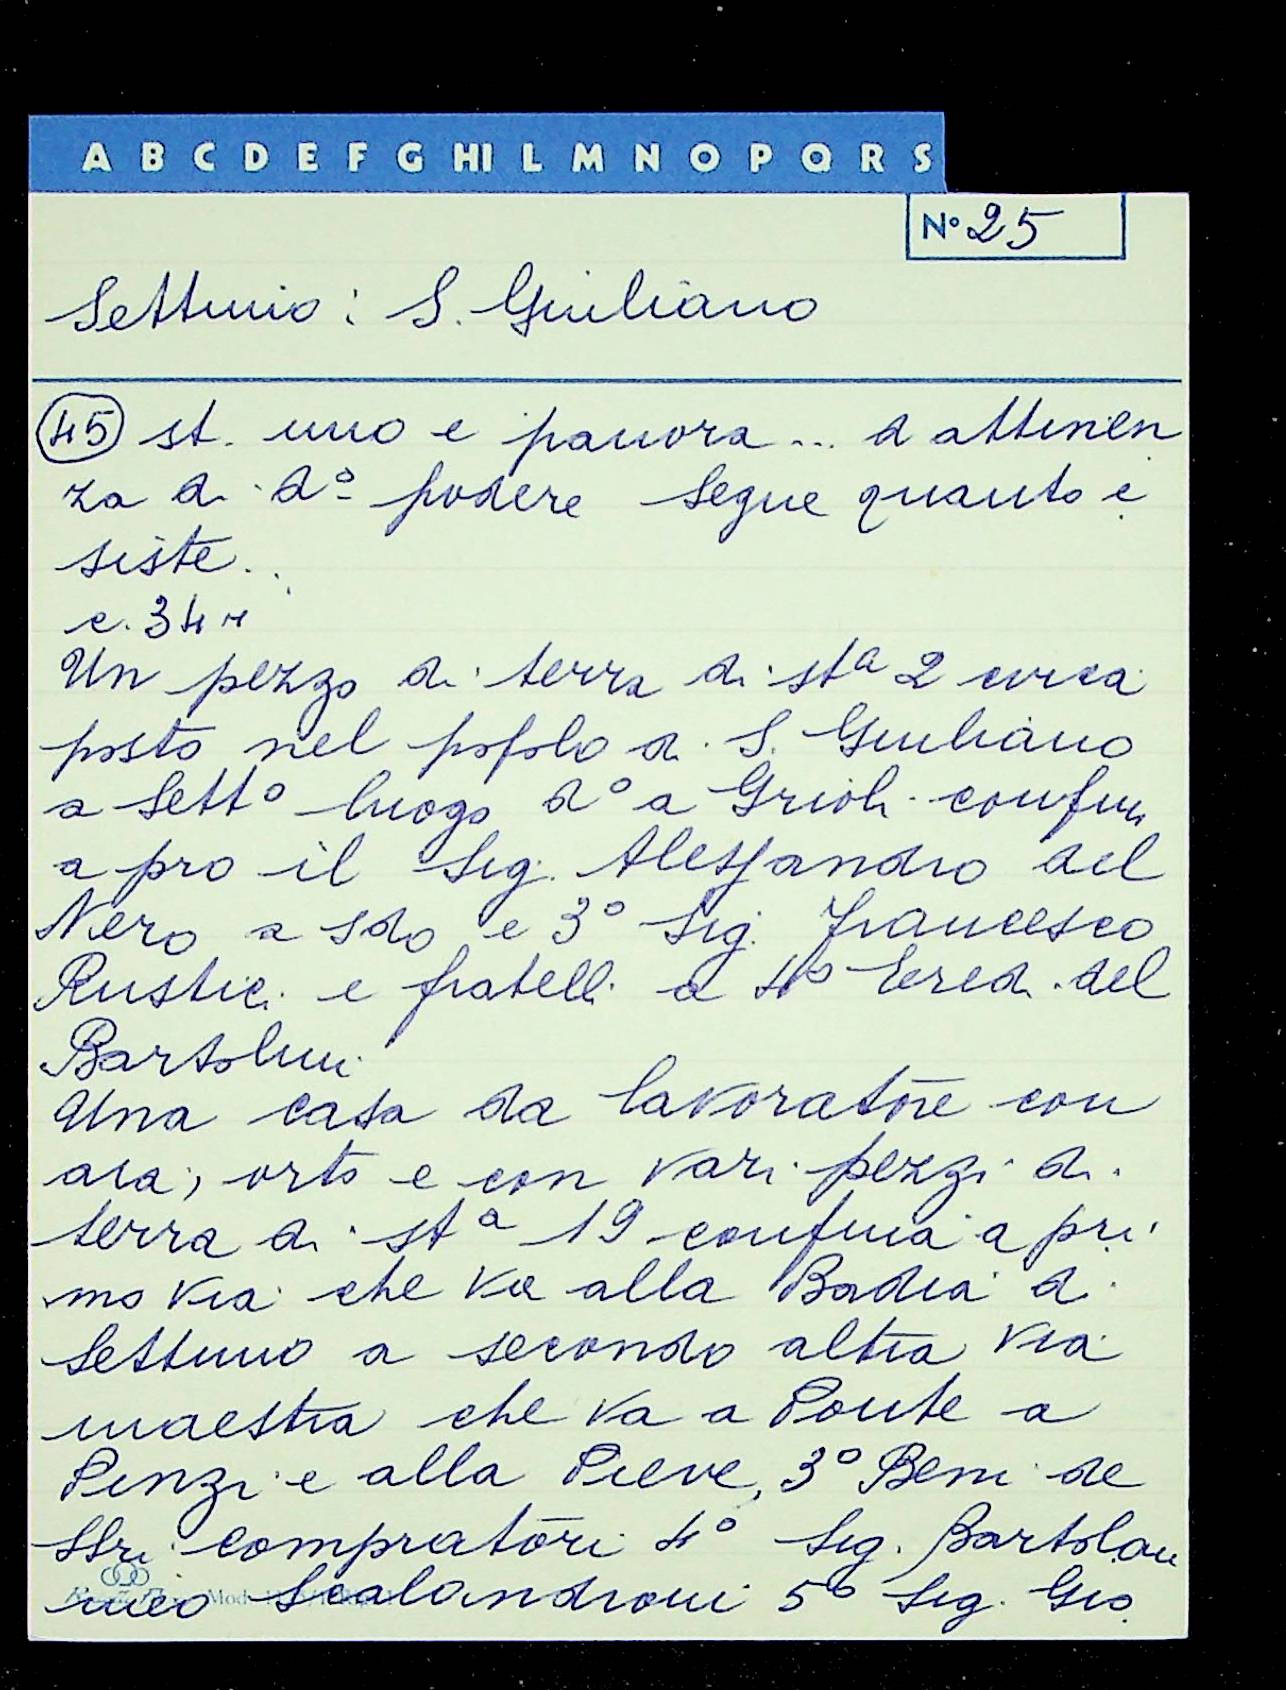 A B C D E F G HI L M N O P Q R S
N° 25
Settimo: S. Giuliano
45 st. uno e panora ... d attinen
za di d° podere segue quanto e
siste...
c. 34 r
Un pezzo di terra di stª 2 circa
posto nel popolo di S. Giuliano
a Sett° luogo d° a Grioli confina
a pro il Sig. Alessandro del
Nero a sdo e 3° Sig. Francesco
Rustici e fratelli a 4° Eredi del
Bartolini
Una casa da lavoratore con
aia, orto e con vari pezzi di
terra di stª 19 confina a pri
mo via che va alla Badia di
Settimo a secondo altra via
maestra che va a Ponte a
Pinzi e alla Pieve, 3° Beni de
SSri compratori 4° Sig. Bartolom
meo Scalandroni 5° Sig. Gio